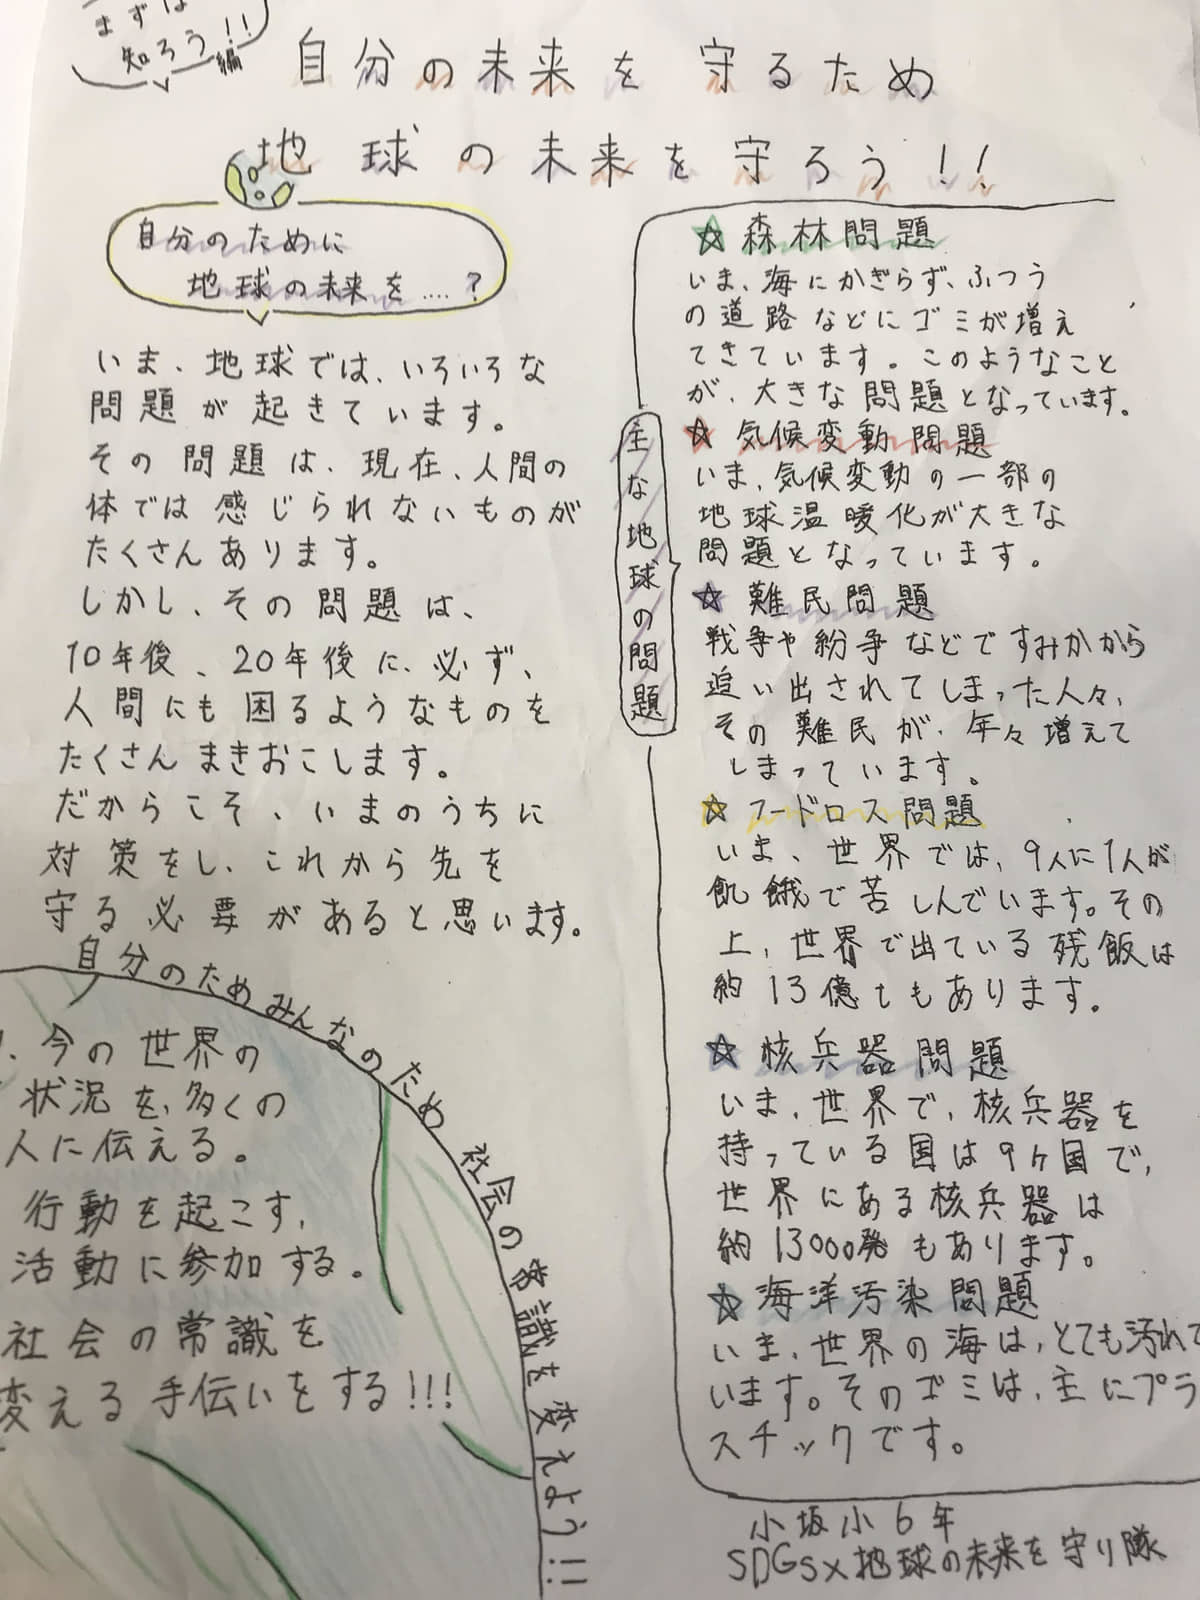 まずは
知ろう!!
編
自分の未来を守るため
地球の未来を守ろう!!
自分のために
地球の未来を....?
いま、地球では、いろいろな
問題が起きています。
その問題は、現在、人間の
体では感じられないものが
たくさんあります。
しかし、その問題は、
10年後、20年後に、必ず、
人間にも困るようなものを
たくさんまきおこします。
だからこそ、いまのうちに
対策をし、これから先を
守る必要があると思います。
自分のためみんなのため社会の常識を変えよう!!
、今の世界の
状況を、多くの
人に伝える。
行動を起こす、
活動に参加する。
社会の常識を
変える手伝いをする!!!
主な地球の問題
☆森林問題
いま、海にかぎらず、ふつう
の道路などにゴミが増え
てきています。このようなこと
が、大きな問題となっています。
☆気候変動問題
いま、気候変動の一部の
地球温暖化が大きな
問題となっています。
☆難民問題
戦争や紛争などですみかから
追い出されてしまった人々、
その難民が、年々増えて
しまっています。
☆フードロス問題
いま、世界では、9人に1人が
飢餓で苦しんでいます。その
上、世界で出ている残飯は
約13億tもあります。
☆核兵器問題
いま、世界で、核兵器を
持っている国は9ヶ国で、
世界にある核兵器は
約13000発もあります。
☆海洋汚染問題
いま、世界の海は、とても汚れて
います。そのゴミは、主にプラ
スチックです。
小坂小6年
SDGs×地球の未来を守り隊